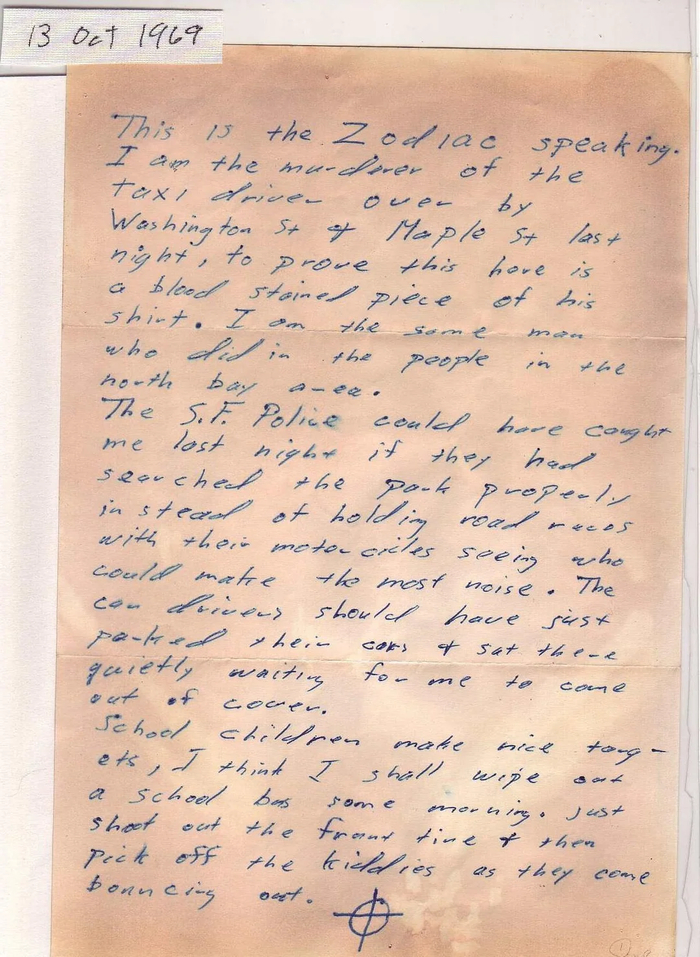 13 Oct 1969
This is the Zodiac speaking.
I am the murderer of the
taxi driver over by
Washington St & Maple St last
night, to prove this here is
a blood stained piece of his
shirt. I am the same man
who did in the people in the
north bay area.
The S.F. Police could have caught
me last night if they had
searched the park properly
in stead of holding road races
with their motorcicles seeing who
could make the most noise. The
car drivers should have just
parked their cars & sat there
quietly waiting for me to come
out of cover.
School children make nice targ-
ets, I think I shall wipe out
a school bus some morning. Just
shoot out the front tire & then
pick off the kiddies as they come
bouncing out.